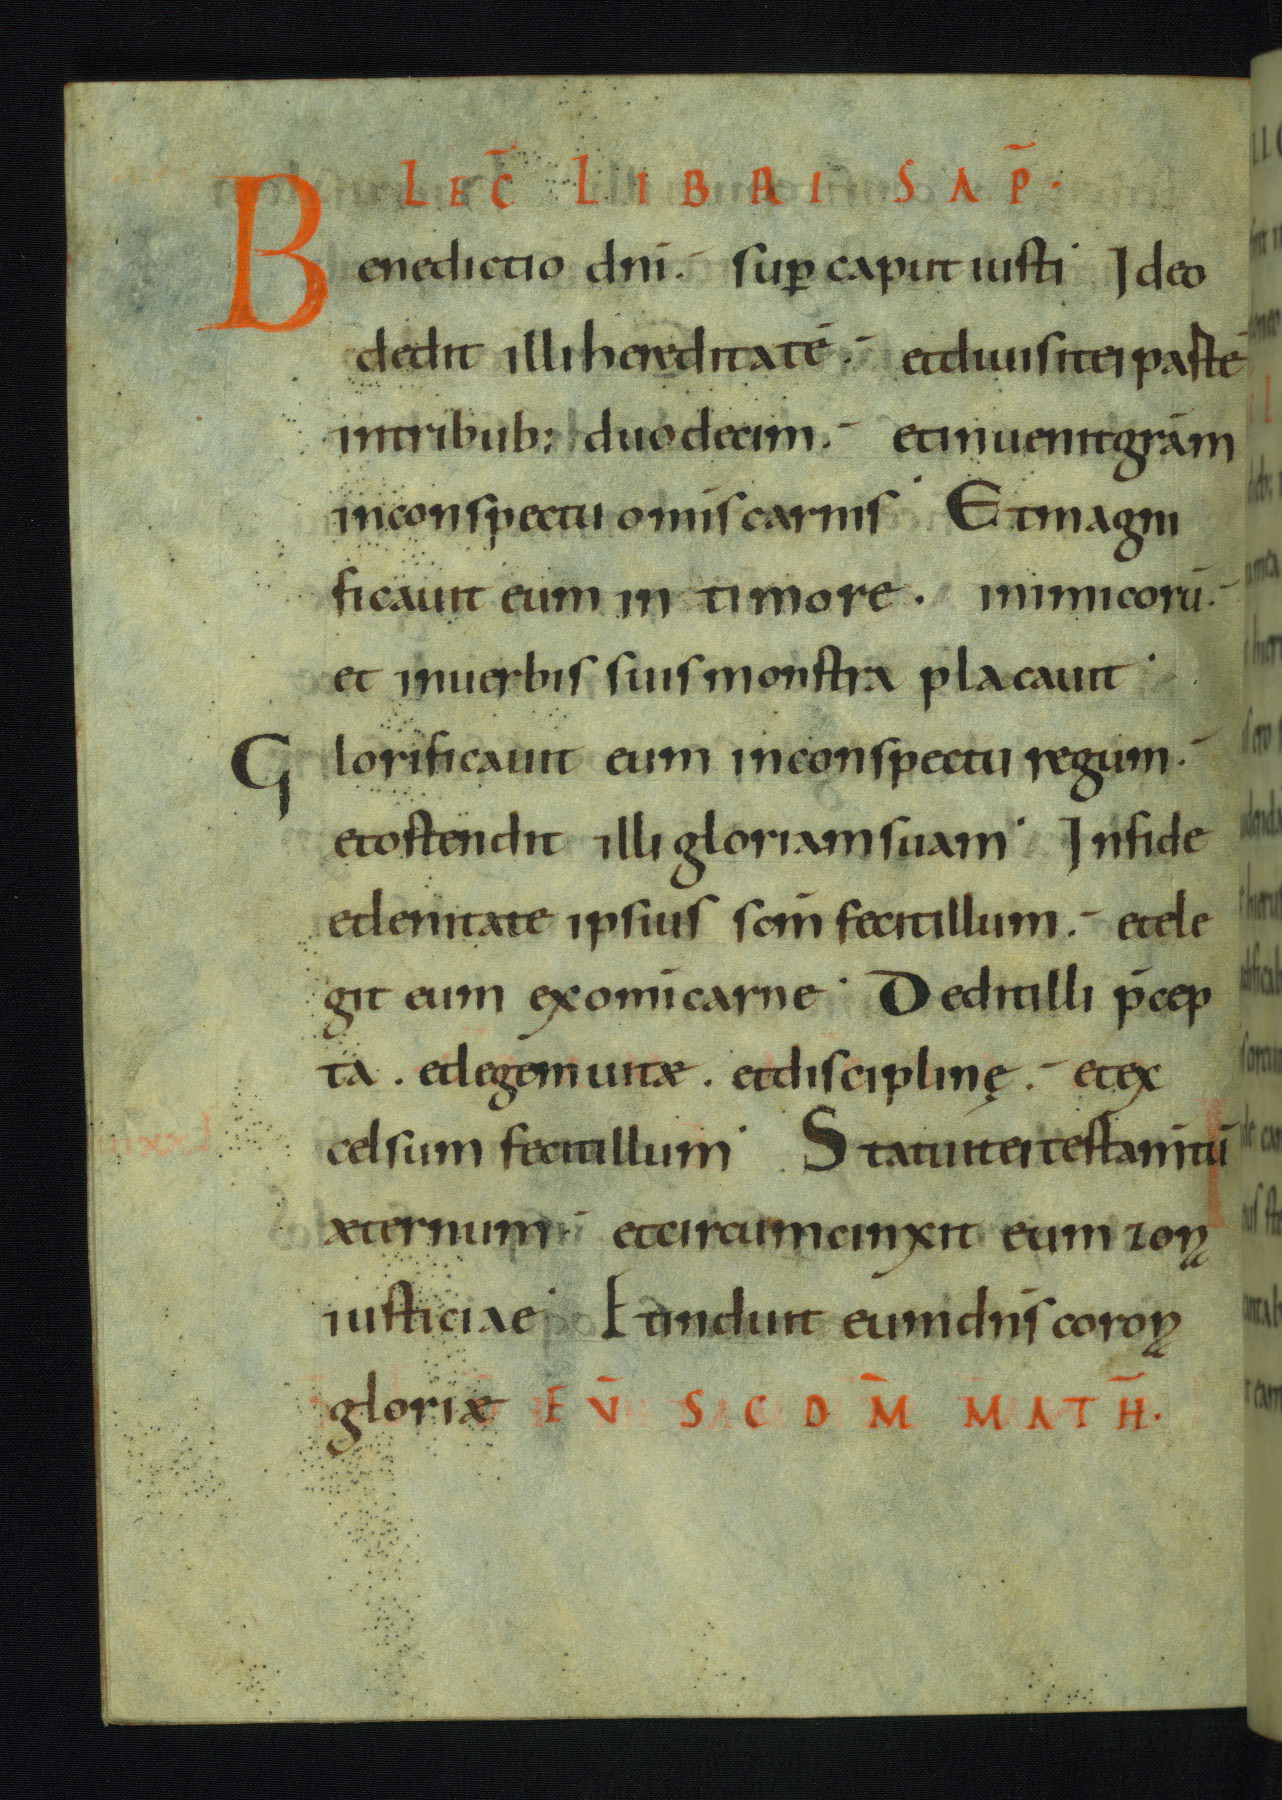 LEC̄ LIBRI SAP̄.
Benedictio dn̄i. sup̲ caput iusti Ideo
dedit illi hereditatē. et diuisit ei partē
in tribub; duodecim. et inuenit grām
in conspectu om̄is carnis Et magni
ficauit eum in timore. inimicorū.
et in uerbis suis monstra placauit
Glorificauit eum in conspectu regum.
et ostendit illi gloriam suam In fide
et lenitate ipsius sc̄m fecit illum. et ele
git eum ex om̄i carne Dedit illi p̄cep
ta. et legem uitæ. et disciplinę. et ex
celsum fecit illum Statuit ei testam̄tū
æternum. et circumcinxit eum zonę
iusticiae Et induit eum dn̄s coronę
gloriæ EV̄ SCDM̄ MATH̄.